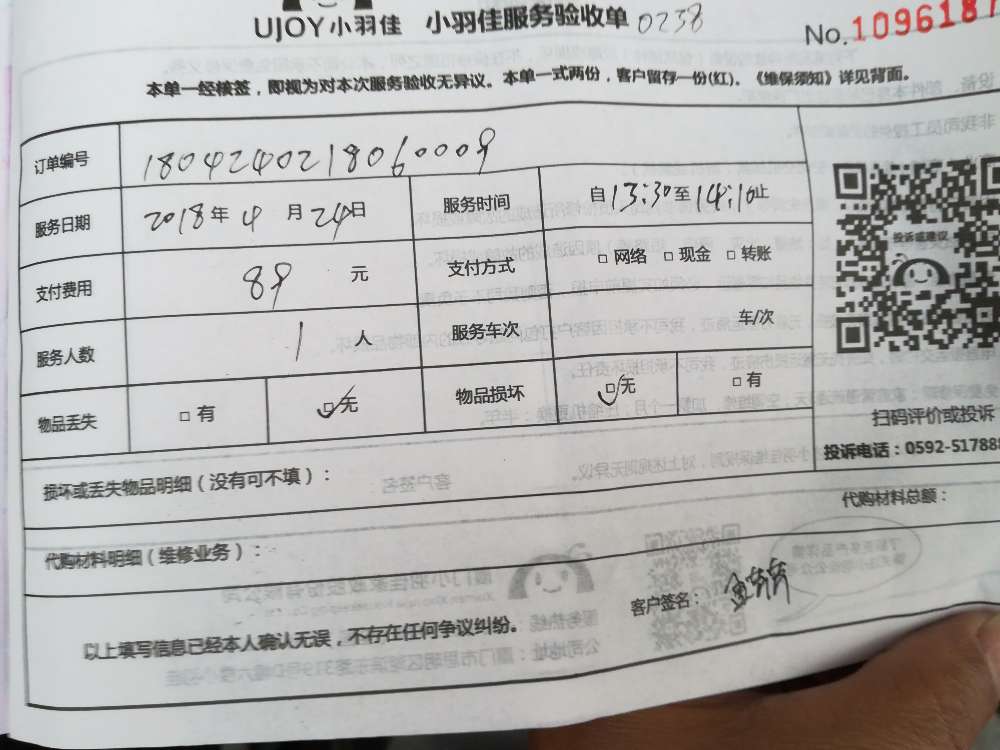 UJOY小羽佳 小羽佳服务验收单 0238
No.1096187
本单一经核签，即视为对本次服务验收无异议。本单一式两份，客户留存一份(红)、《维保须知》详见背面。
订单编号 1804240218060009
服务日期 2018年4月24日 服务时间 自13:30至14:10止
支付费用 89 元 支付方式 □网络 □现金 □转账
服务人数 1 人 服务车次 车/次
物品丢失 □有 ☑无 物品损坏 ☑无 □有
投诉或建议
扫码评价或投诉
投诉电话：0592-517888
损坏或丢失物品明细（没有可不填）：
代购材料总额：
代购材料明细（维修业务）：
客户签名：
以上填写信息已经本人确认无误，不存在任何争议纠纷。